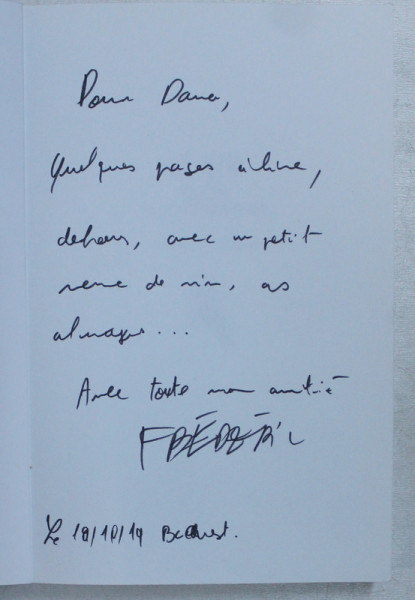 Pour Dana,
Quelques pages à lire,
dehors, avec un petit
verre de vin,
Avec toute mon amitié
FRÉDÉRIC
Le 18/10/14 Bucarest.